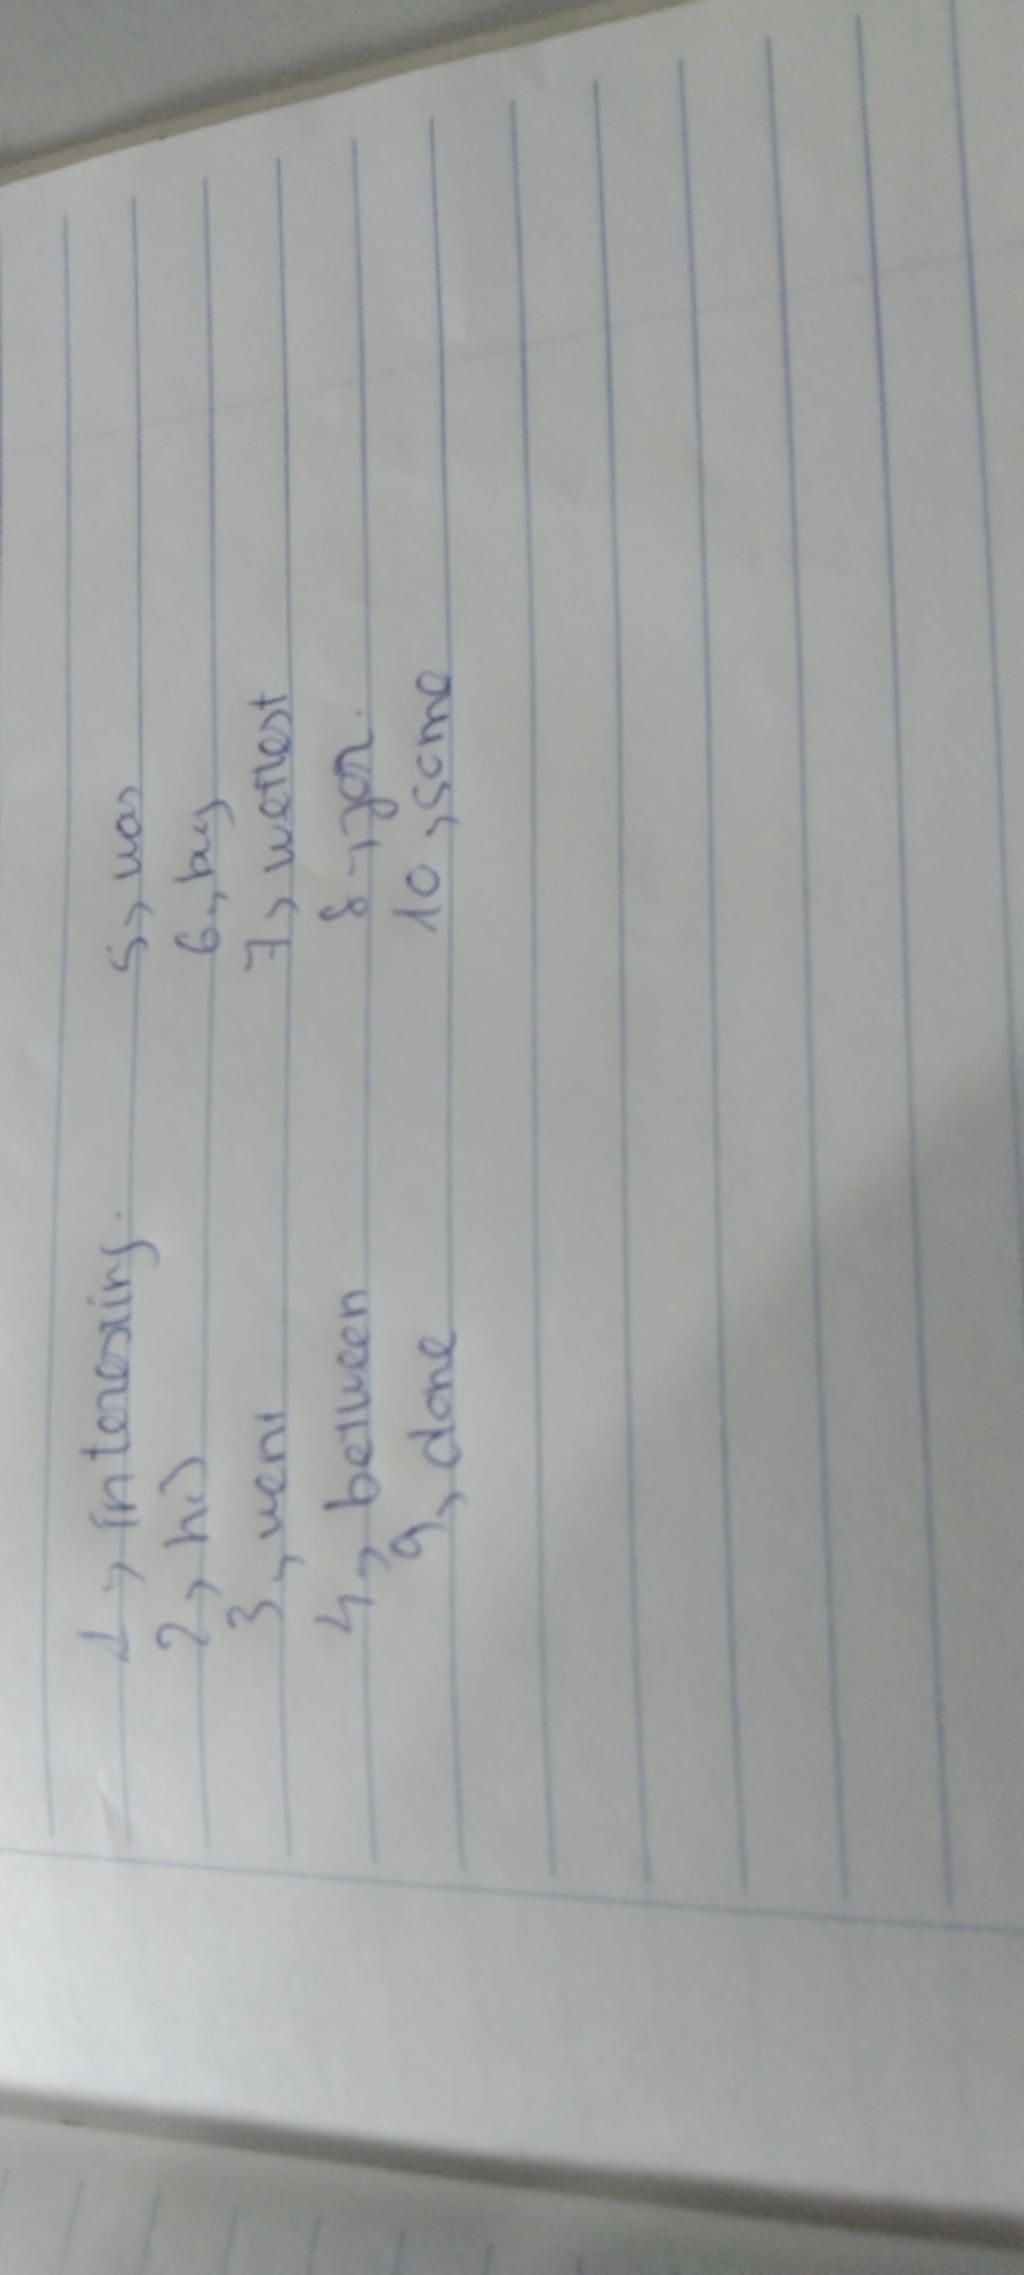 1, interesxing. 5, was
2, his 6, buy
3, went 7, wettest
4, between 8, for.
9, done 10, some